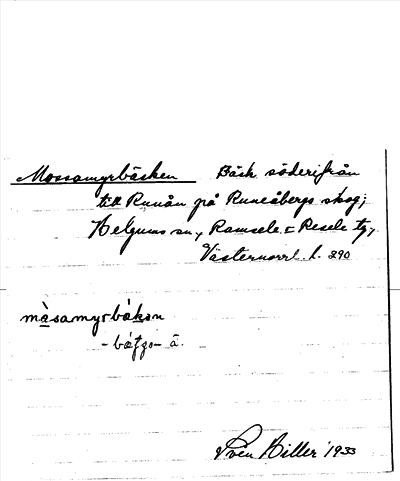 Mossamyrbäcken Bäck söderifrån
till Runån på Runeåbergs skog;
Helgums sn, Ramsele o Resele tg,
Västernorrl. l. 290
måsamyrbäkən
Sven Hiller 1933